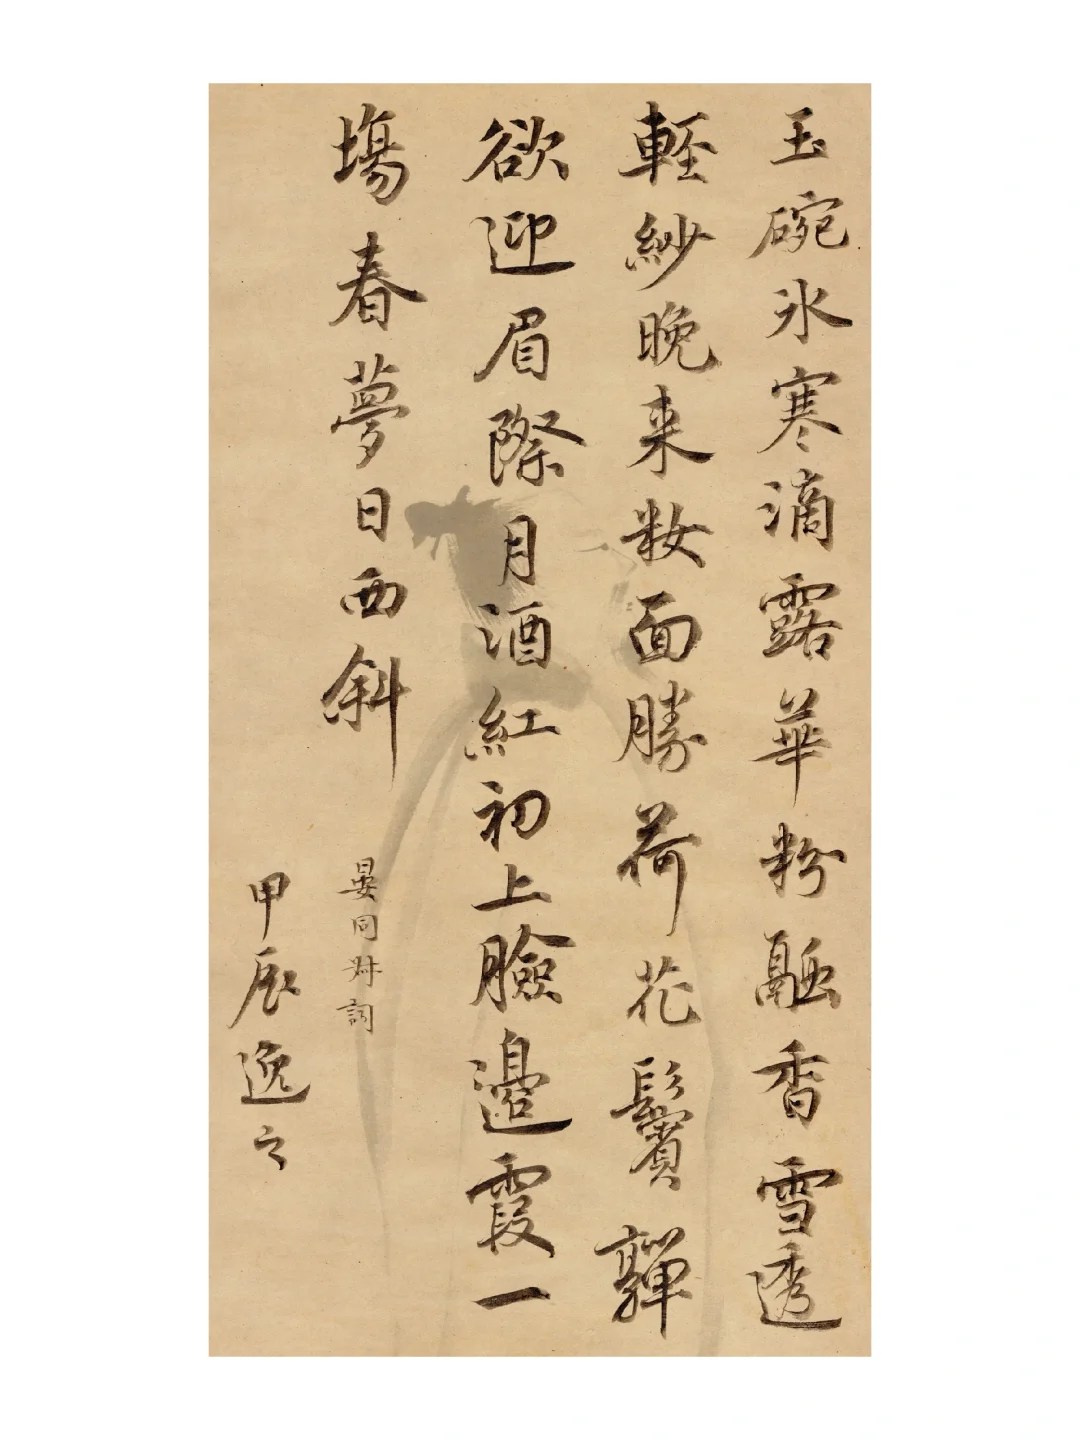 玉碗氷寒滴露華粉融香雪透
輕紗晚来妝面勝荷花鬢嚲
欲迎眉際月酒紅初上臉邊霞一
塲春夢日西斜
晏同叔詞
甲辰逸之